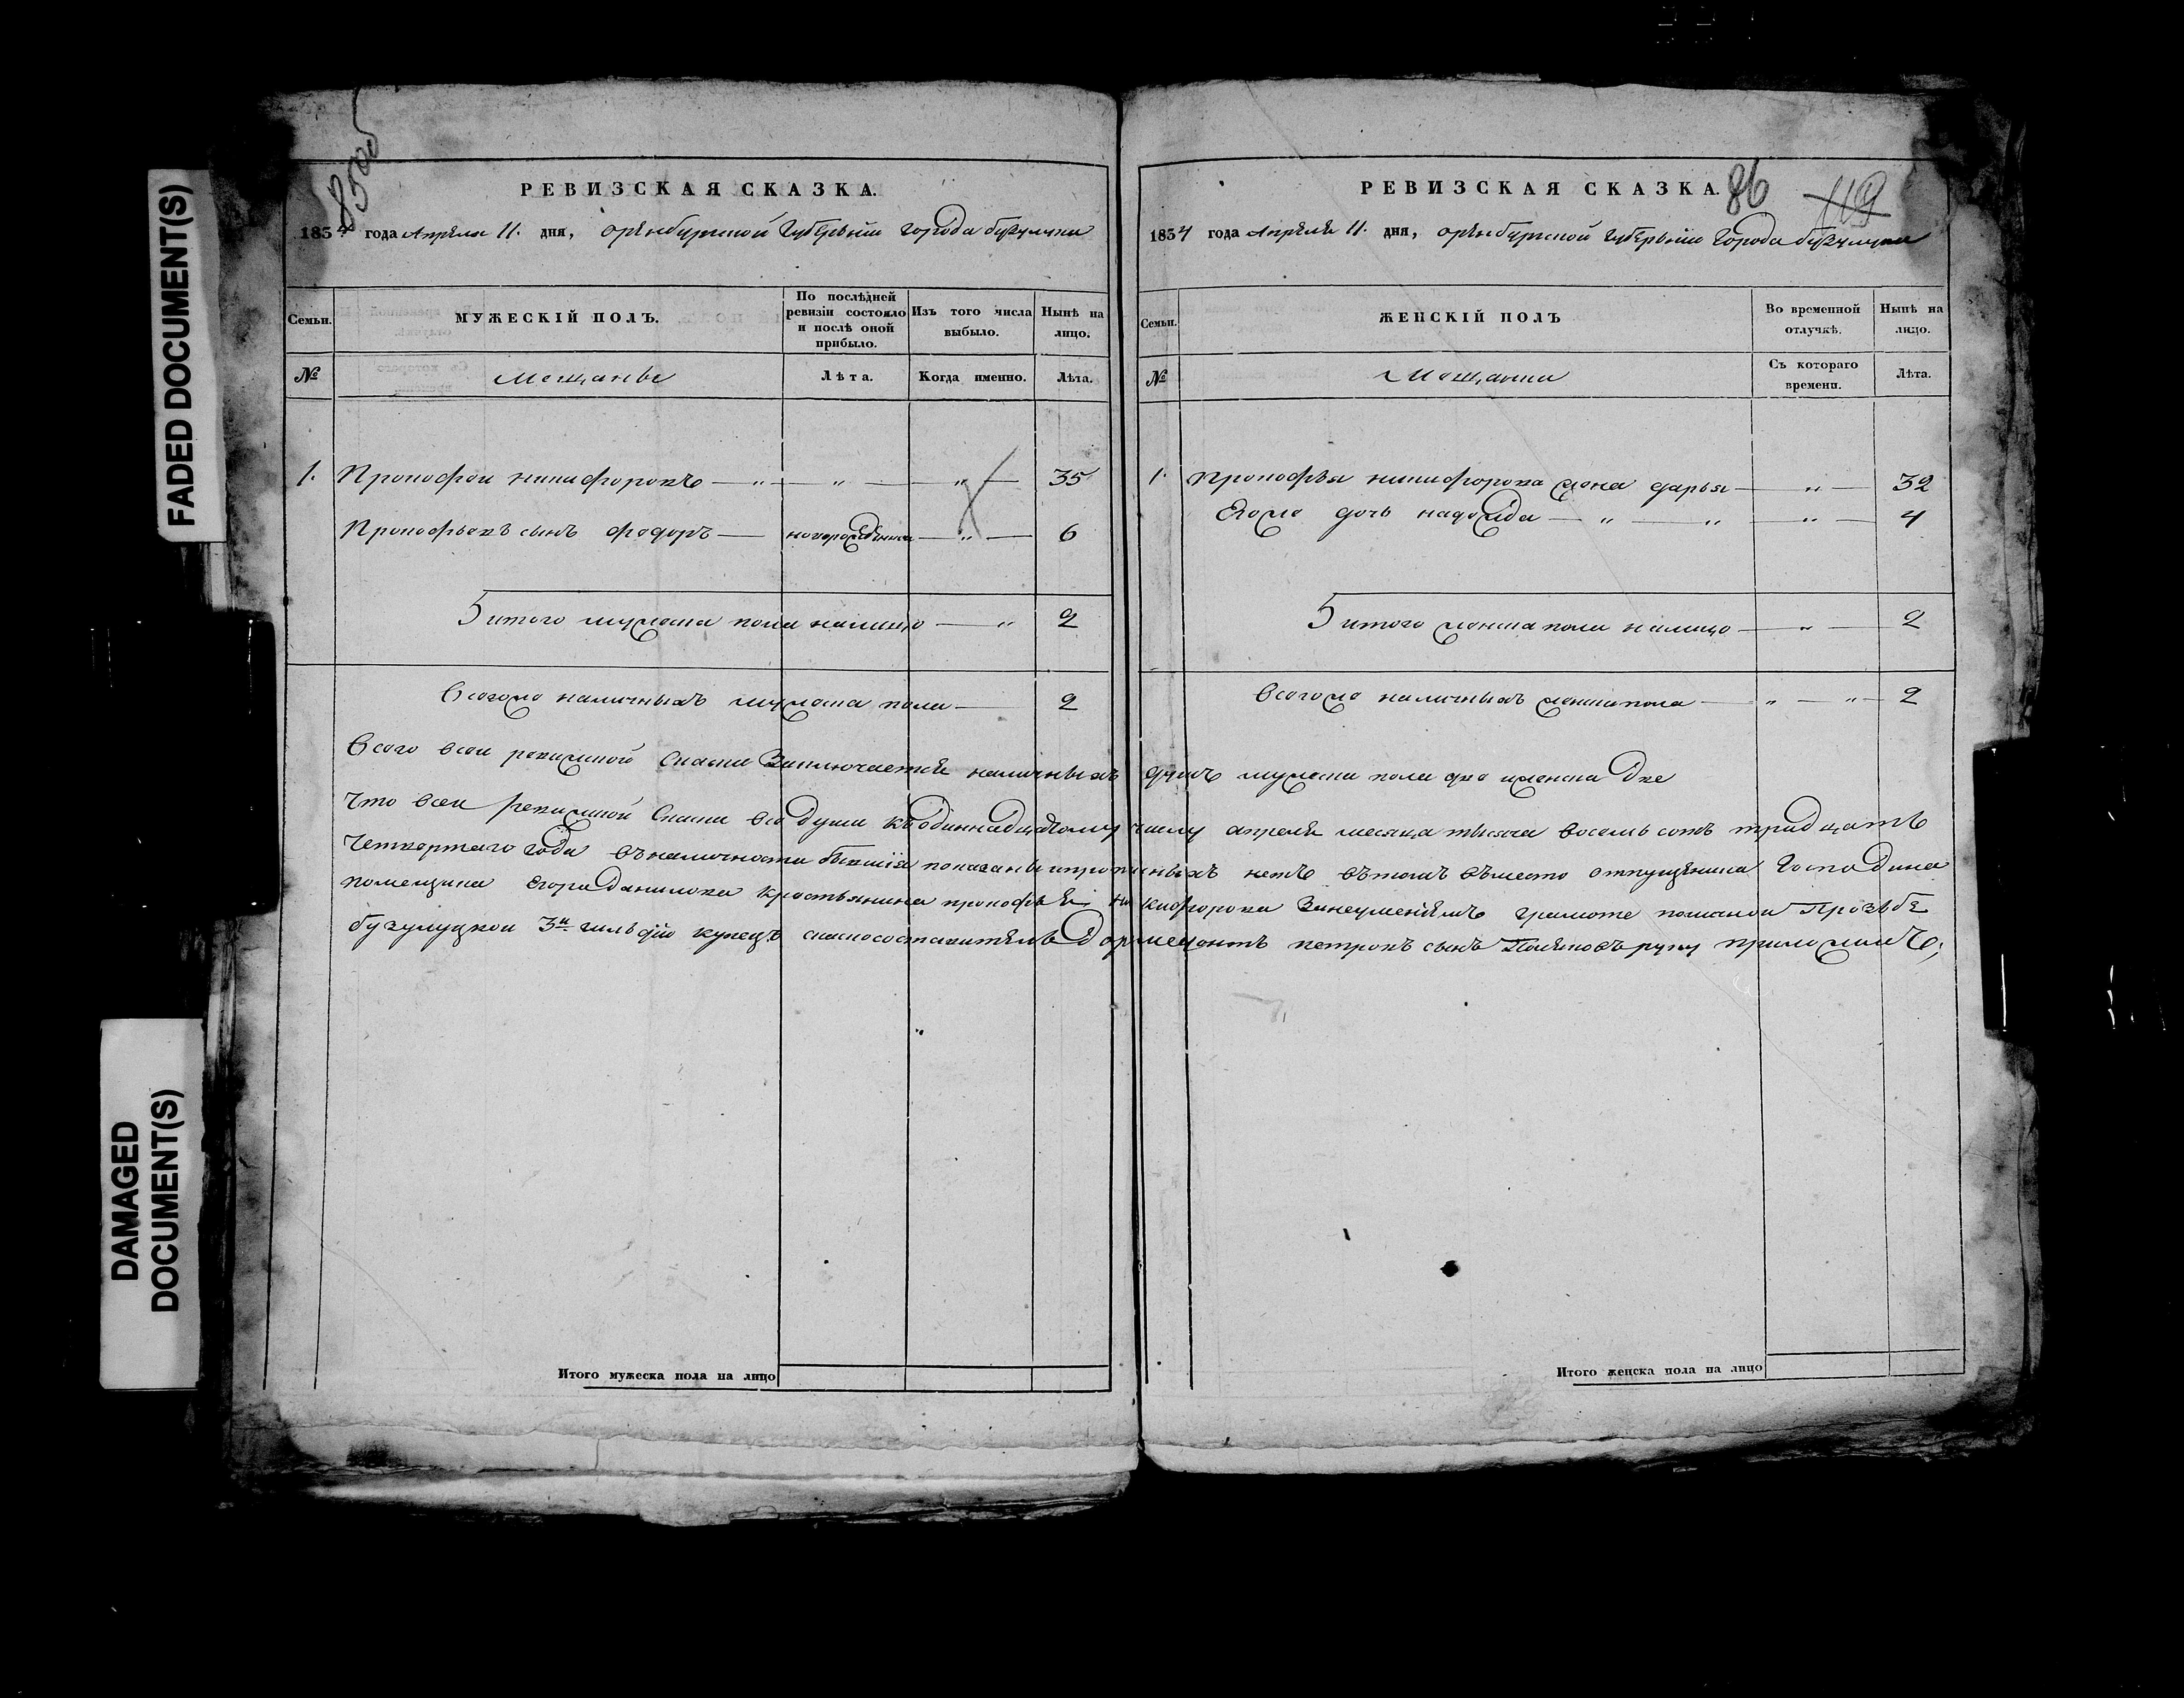 FADED DOCUMENT(S)
DAMAGED
DOCUMENT(S)
85об
РЕВИЗСКАЯ СКАЗКА.
1834 года Апреля 11. дня, оренбургской Губернии города бузулука
Семьи.
МУЖЕСКІЙ ПОЛЪ.
По послѣдней ревизіи состояло и послѣ оной прибыло.
Изъ того числа выбыло.
Нынѣ на лицо.
№
Мещанъе
Лѣта.
Когда именно.
Лѣта.
1. Прокофеи никифоровъ — „ — „ — „ — 35
Прокофьевъ сынъ федоръ — новорожденной — „ — 6
итого мужеска пола налицо — „ 2
Всегожо наличныхъ мужеска пола — 2
86
119
РЕВИЗСКАЯ СКАЗКА.
1834 года Апреля 11. дня, оренбургской губернии Города бузулука
Семьи.
ЖЕНСКІЙ ПОЛЪ
Во временной отлучкѣ.
Нынѣ на лицо.
№
Мещанки
Съ котораго времени.
Лѣта.
1. Прокофья никифорова жена дарья — „ — 32
Егожо дочь надежда — „ — „ — „ — 4
итого женска пола налицо — „ — 2
всегожо наличныхъ женска пола — „ — „ — 2
Всего всеи ревижской Скаски Заключается наличныхъ душъ мужеска пола два иженска Две
Что всеи ревижской Скаски все души къодиннадцатому числу апреля месяца тысяча восемь сотъ тридцать
четвертаго года въналичности бывшія показаны ипрописныхъ нетъ вътомъ въместо отпущеника Господина
помещика Егора данилова крестьянина прокофья никифорова Занеумениемъ грамоте поличнои Прозьбе
бузулуцкои 3й гильдіи купецъ петровъ сынъ руку приложилъ,
Итого мужеска пола на лицо
Итого женска пола на лицо